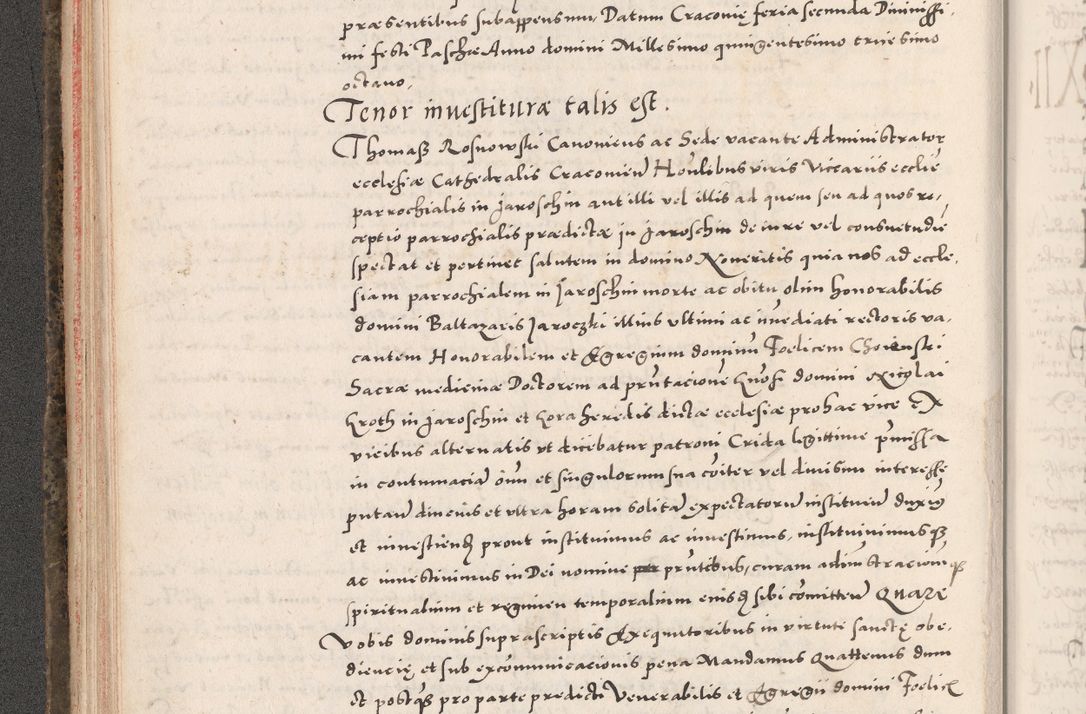 præsentibus subappensum, Datum Craconie feria secunda Diviniſſi,
mi festi Paschæ Anno domini Millesimo quingentesimo tricesimo
octavo,
Tenor investituræ talis est.
Thomaß Rosnowski Canonicus ac Sede vacante Administrator
ecclesiæ Cathedralis Cracovien Honlibus viris Viccariis ecclie
parrochialis in Jaroschin aut illi vel illis ad quem seu ad quos re,
ceptio parrochialis prædictæ in Jaroschin de iure vel consuetudie
spectat et pertinet salutem in domino Noveritis quia nos ad eccle,
siam parrochialem in Jaroschin morte ac obitu olim honorabilis
domini Baltazaris Jaroczki illius ultimi ac immediati rectoris va,
cantem Honorabilem et Egregium dominum Foelicem
Sacræ medicinæ Doctorem ad prntacione Gnosi domini Nicolai
Kroth in Jaroschin et Gora heredis dictæ ecclesiæ pro hac vice ex
vicibus alternatis ut dicebatur patroni Crida legittime pmissa
in contumacia oim et singulorum sua coiter vel divisim interesse
putan diucius et ultra horam solita expectatorum instituen duxim9
et investiend prout instituimus ac investimus, instituivimusq3
ac investivimus in Dei nomine prntibus, curam administracionq3
spiritualium et regimen temporalium eiusd sibi comitten Quare
vobis dominis suprascriptis Exequutoribus in virtute sanctę obe,
diencię et sub excommunicacionis pena Mandamus Quattenus dum
et postq3 pro parte predicti Venerabilis et Egregii domini Foelicis